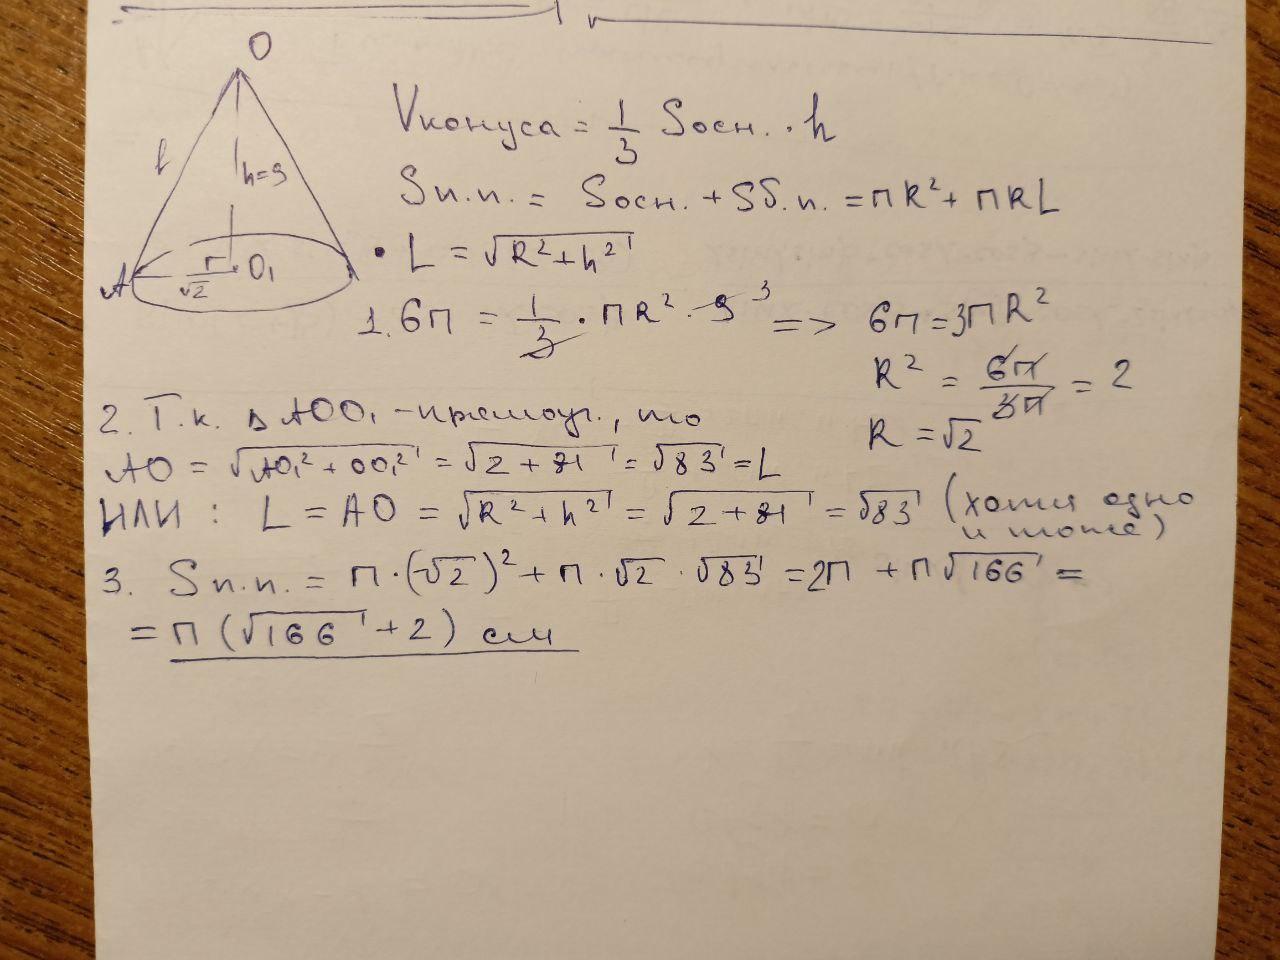 O
l
h=9
r
√2
O₁
A
Vконуса = 1/3 Sосн. · h
Sп.п. = Sосн. + Sб.п. = πR² + πRL
• L = √(R²+h²)
1. 6π = 1/3 · πR² · 9 3 => 6π = 3πR²
R² = 6π/3π = 2
R = √2
2. Т.к. △AOO₁ - прямоуг., то
AO = √(AO₁² + OO₁²) = √(2 + 81) = √83 = L
ИЛИ : L = AO = √(R² + h²) = √(2+81) = √83 (хотя одно
и тоже)
3. Sп.п. = π·(√2)² + π·√2·√83 = 2π + π√166 =
= π(√166 + 2) см